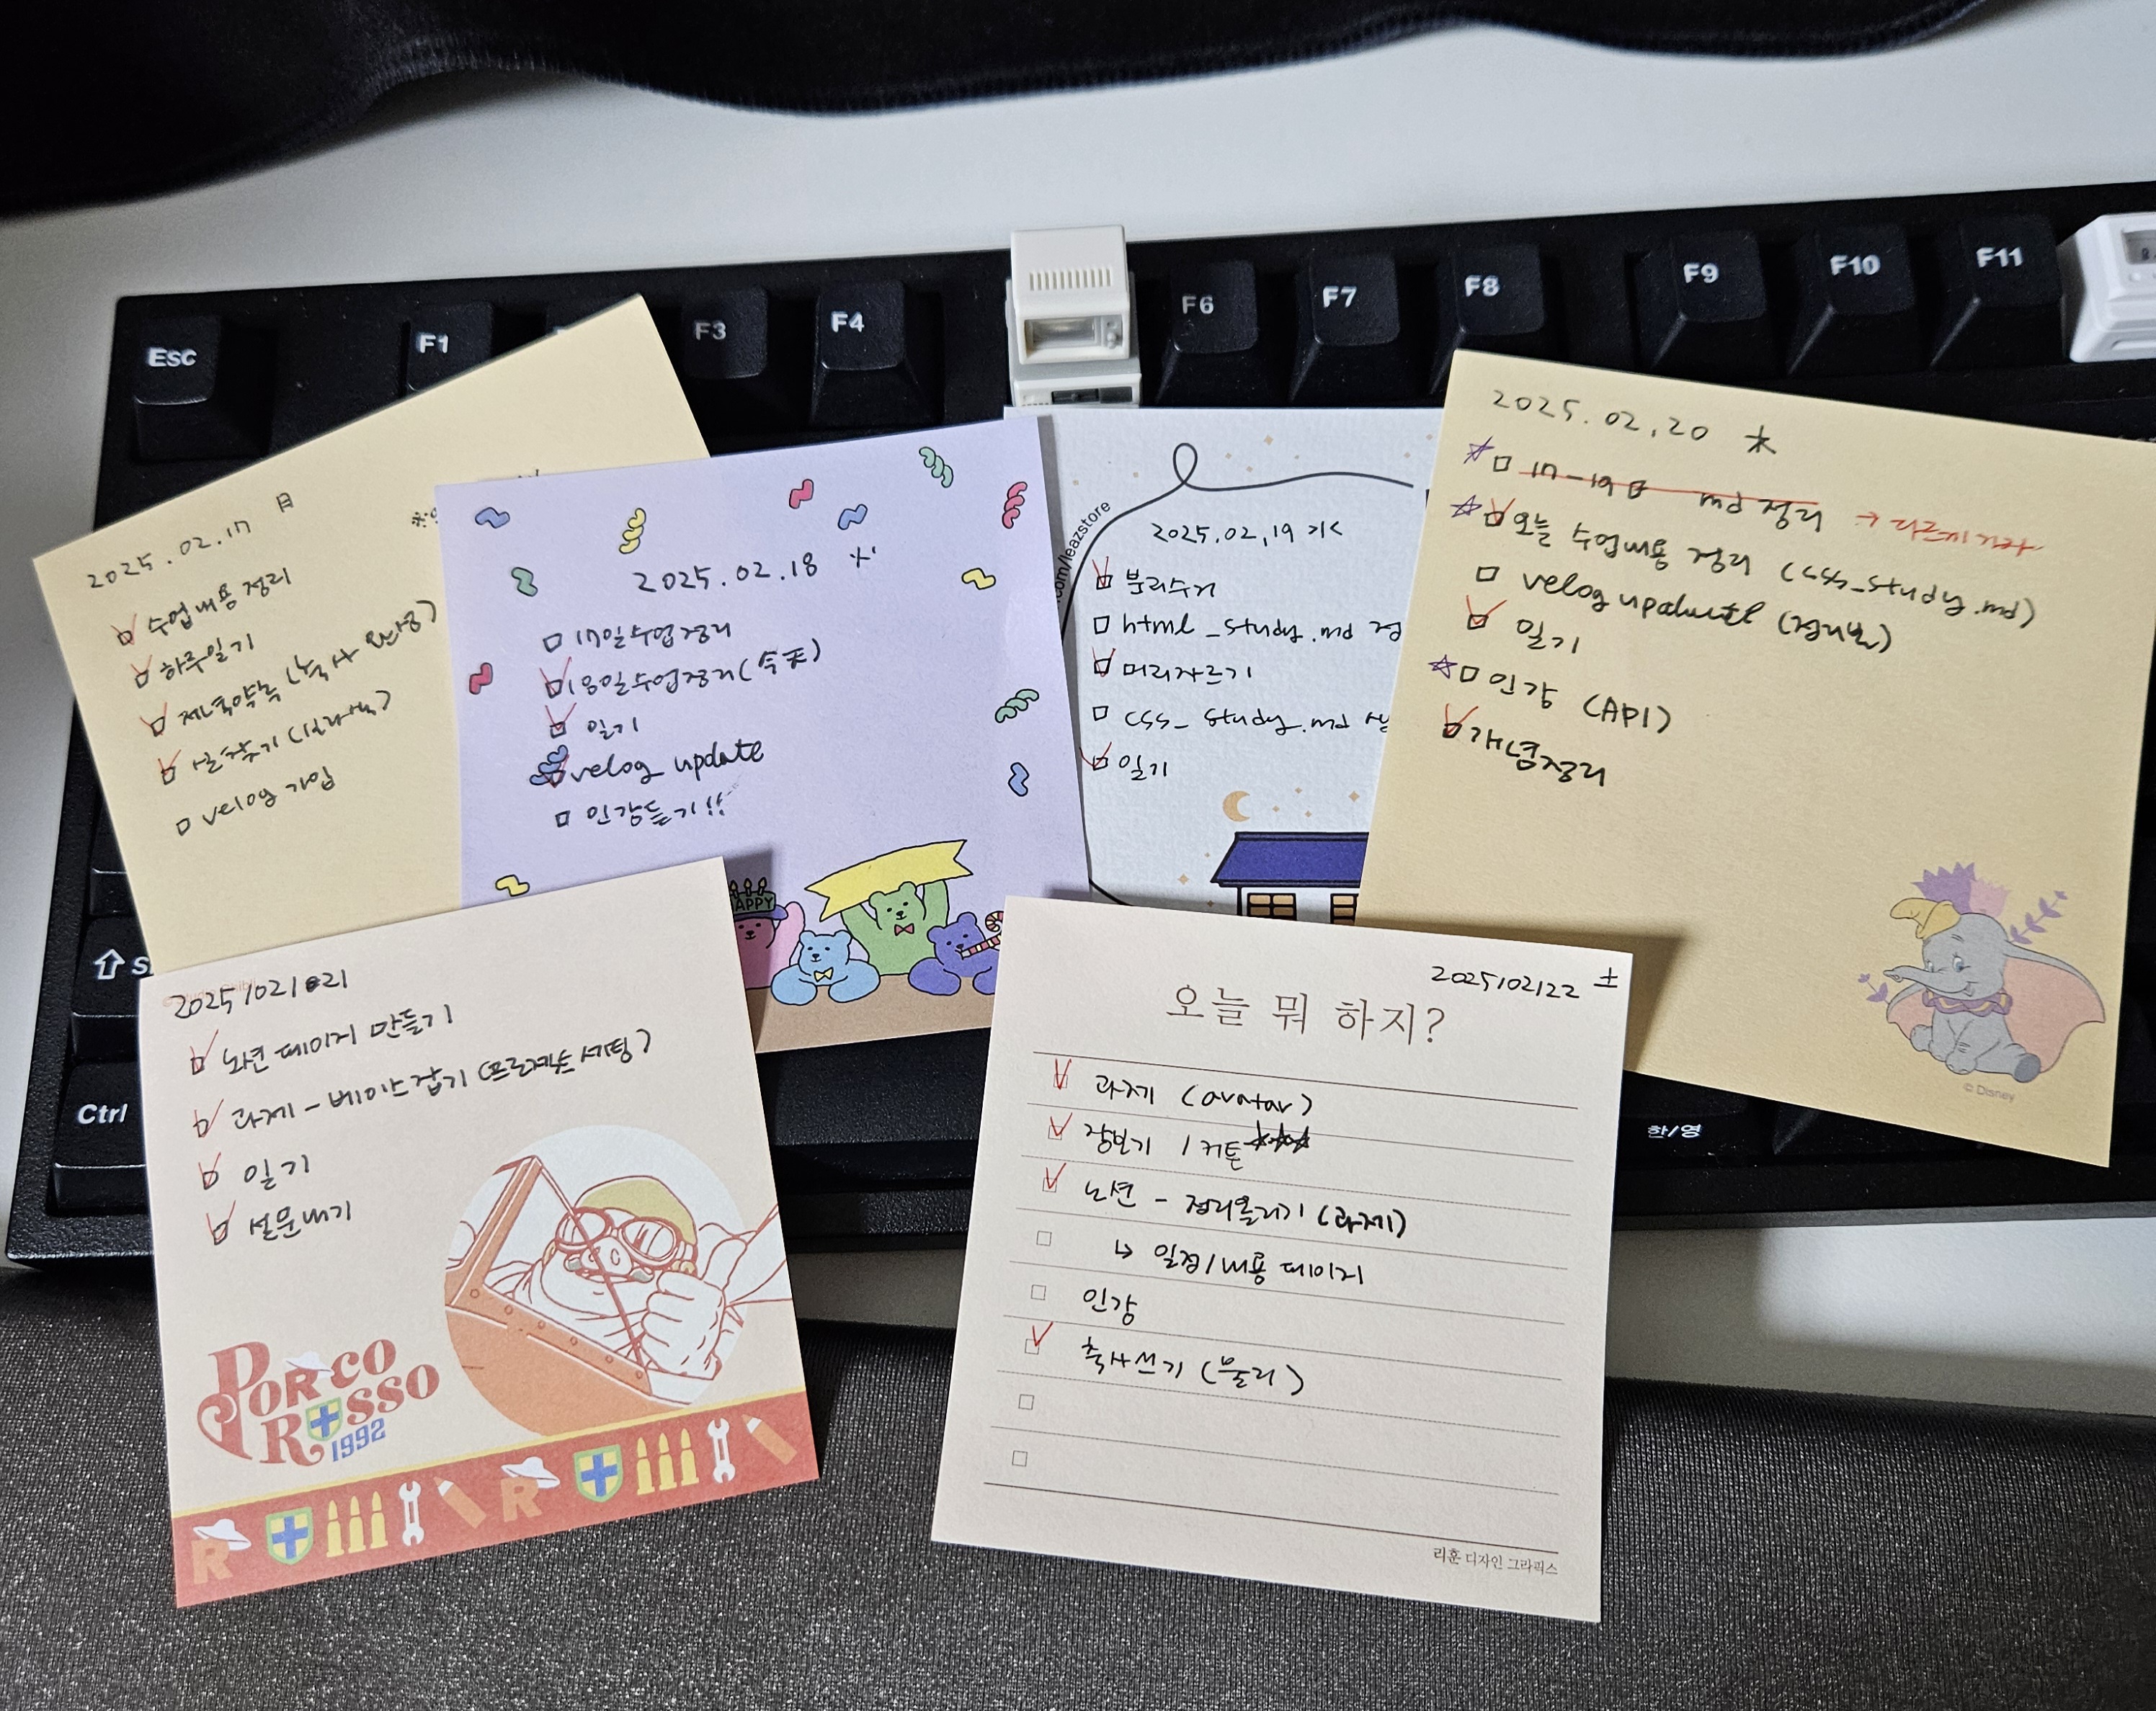 Esc
F1
F3
F4
F6
F7
F8
F9
F10
F11
2025.02.17 月
수업내용 정리
하루일기
velog 가입
2025.02.18 火
17일수업정리
18일수업정리(今天)
일기
velog update
인강듣기!!
.com/leazstore
2025.02.19 水
분리수거
html_study.md 정
머리자르기
css_study.md
일기
2025.02.20 木
17-19日 md 정리 →
오늘 수업내용 정리 (css_study.md)
velog update (정리본)
일기
인강 (API)
개념정리
© Disney
HAPPY
Ctrl
한/영
2025/02/21
노션 페이지 만들기
과제 - 베이스 잡기 (프로젝트 세팅)
일기
설문내기
PORCO
ROSSO
1992
R
R
2025/02/22 土
오늘 뭐 하지?
과제 (avatar)
장보기 / 커튼
노션 - 정리올리기 (과제)
↳ 일정/내용 페이지
인강
축사쓰기 (물리)
리훈 디자인 그라픽스